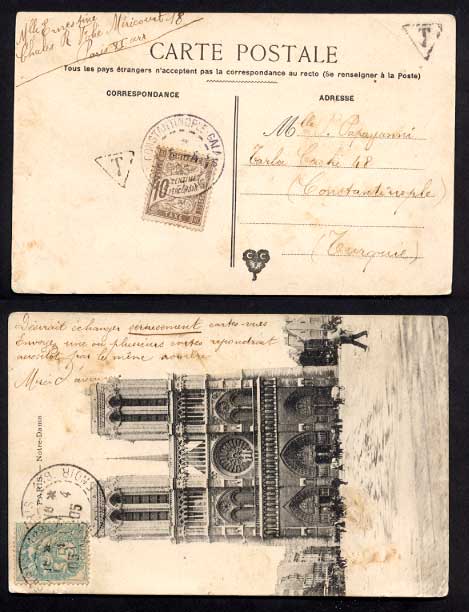 Mlle Ernestine
Chales R. Folie Méricourt 48
Paris XI arr
T
CARTE POSTALE
Tous les pays étrangers n'acceptent pas la correspondance au recto (Se renseigner à la Poste)
CORRESPONDANCE
ADRESSE
CONSTANTINOPLE GALATA
T
10
CENTIMES
A PERCEVOIR
TAXE
Mlle Papayanni
Tarla Bachi 48
(Constantinople)
(Turquie)
C C
Désirait échanger serieusement cartes-vues
Envoyez une ou plusieurs cartes repondrait
aussitôt par le même nombre
Merci d'avance
PARIS — Notre-Dame
18
4
05